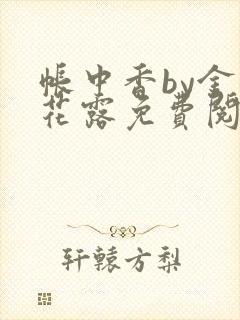 帐中香by金
花露免費閱
轩辕方梨